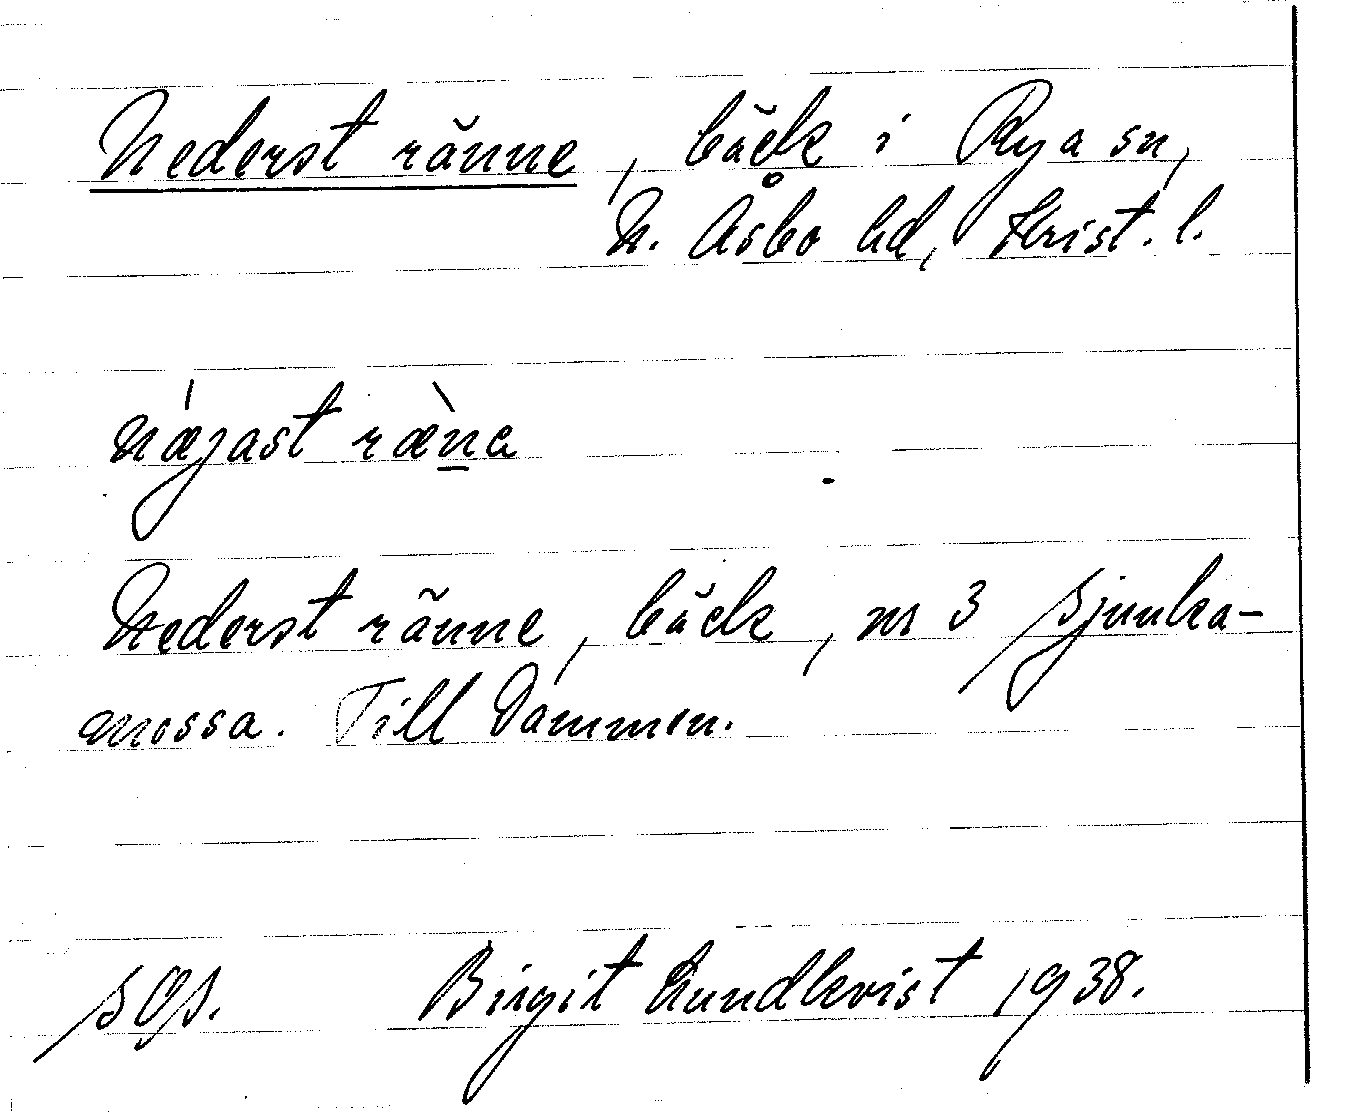 Nederst ränne, bäck i Rya sn,
N. Åsbo hd, Krist. l.
nǽjast ræ̀n̲a
Nederst ränne, bäck, nr 3 Sjunka-
mossa. Till Dammen.
Birgit Lundkvist 1938.